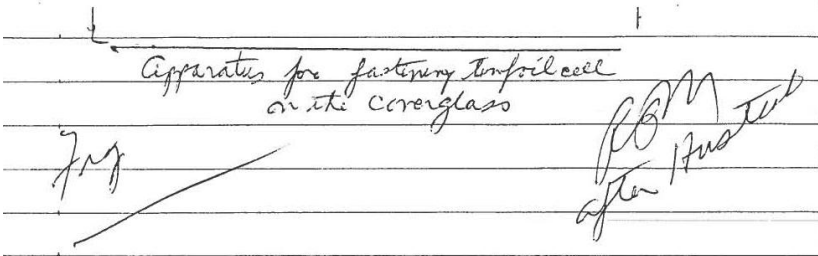 Apparatus for fastening tinfoil cell
on the coverglass
Fig
after Hustedt